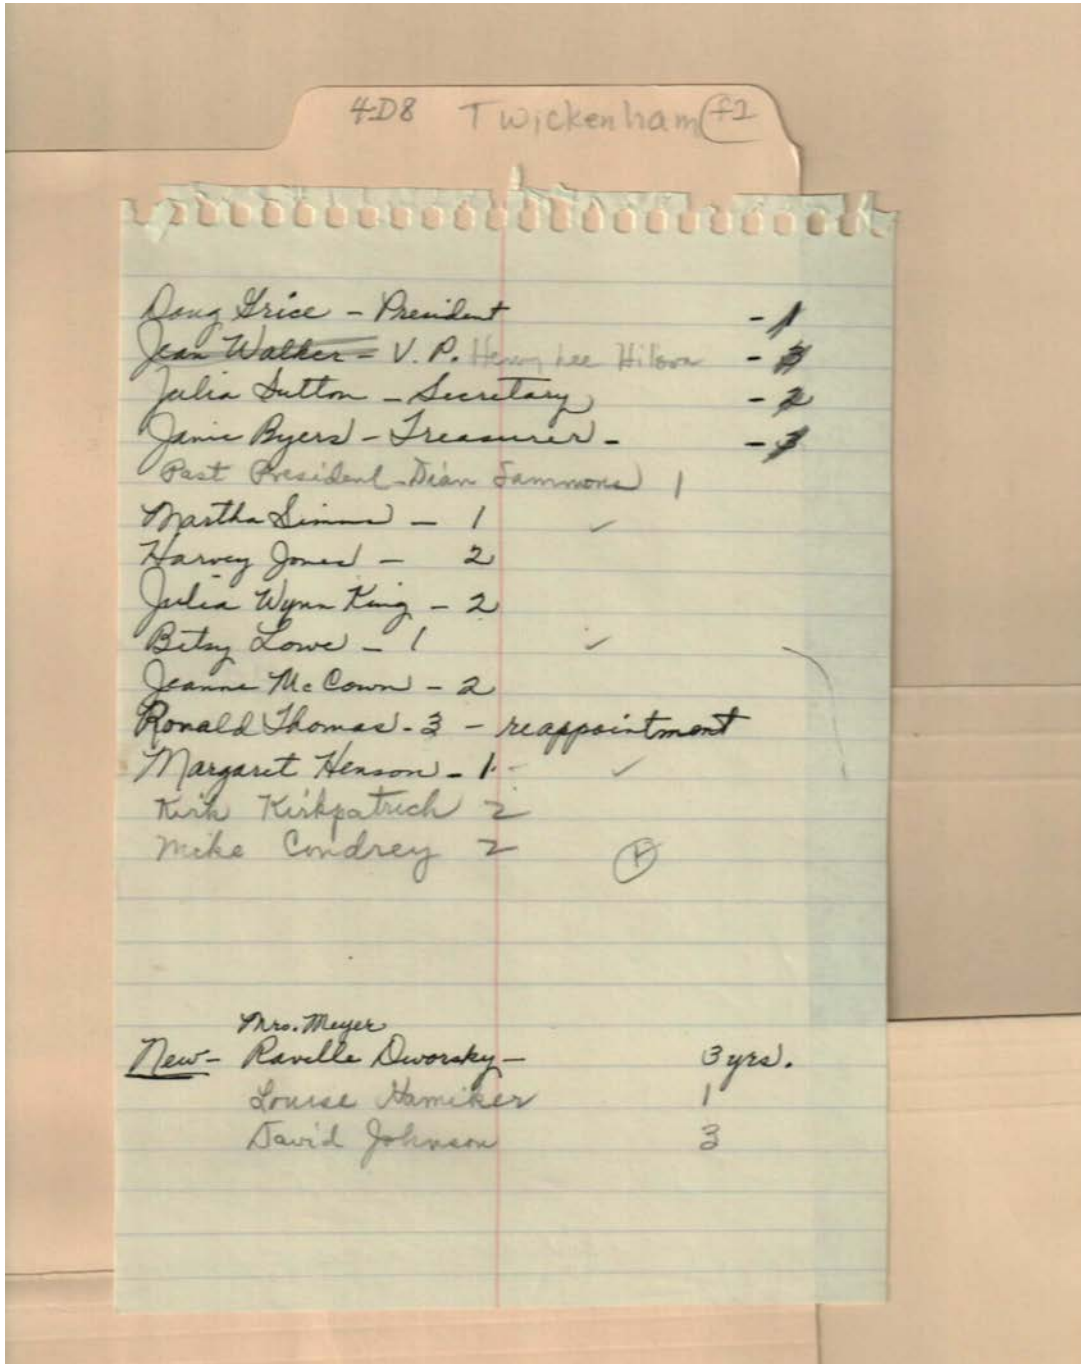 4-D8 Twickenham f2
Doug Grice - President - 1
Jean Walker = V. P. Henry Lee - 3
Julia Sutton - Secretary - 2
Janie Byers - Treasurer - - 3
Past President - Dian Sammons 1
Martha Simms - 1 ✓
Harvey Jones - 2
Julia Wynn King - 2
Betsy Lowe - 1 ✓
Jeanne McCown - 2
Ronald Thomas - 3 - reappointment
Margaret Henson - 1 - ✓
Kirk Kirkpatrick 2
Mike Condrey 2
Mrs. Meyer
New - Ravelle Dworsky - 3 yrs.
Louise Hamiker 1
David Johnson 3